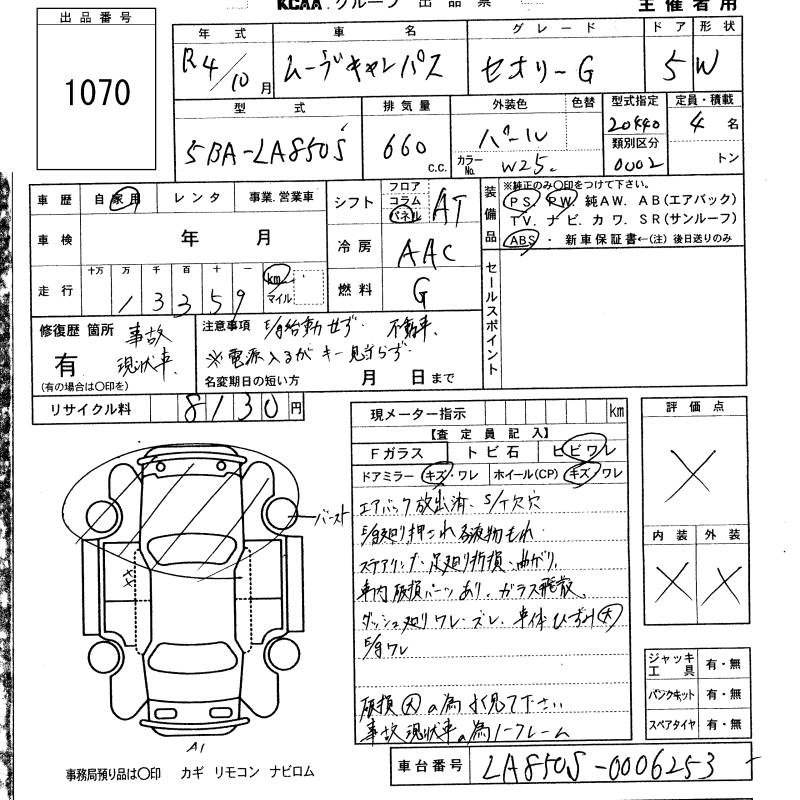 KCAA グループ 出品票
主催者用
出品番号
1070
年式 車名 グレード ドア 形状
R4/10月 ムーヴキャンバス セオリーG 5 W
型式 排気量 外装色 色替 型式指定 定員・積載
5BA-LA850S 660 c.c. パール 20440 4名
カラーNo. W25. 類別区分 0002 トン
車歴 自家用 レンタ 事業.営業車
シフト フロア コラム パネル AT
装備品 ※純正のみ〇印をつけて下さい。
PS PW 純AW. AB(エアバック)
TV. ナビ. カワ. SR(サンルーフ)
ABS ・ 新車保証書←(注) 後日送りのみ
車検 年 月
冷房 AAC
走行 十万 万 千 百 十 一
13359 km マイル
燃料 G
セールスポイント
修復歴 箇所 事故
有 現状車.
(有の場合は〇印を)
注意事項 E/g始動せず. 不動車.
※電源入るがキー見当らず.
名変期日の短い方 月 日まで
リサイクル料 8130円
現メーター指示 km
【査定員記入】
Fガラス トビ石 ヒビワレ
ドアミラー キズ・ワレ ホイール(CP) キズ/ワレ
エアバック放出済. S/T欠穴
E/g廻り押これ 液物もれ.
ステアリング. 足廻り折損. 曲がり.
車内破損パーツあり. ガラス飛散.
ダッシュ廻りワレ・ズレ. 車体ひずみ大
E/gワレ
破損大の為よく見て下さい
事故現状車の為ノークレーム
評価点
X
内装 外装
X X
ジャッキ 工具 有・無
パンクキット 有・無
スペアタイヤ 有・無
バースト
XX
A1
事務局預り品は〇印 カギ リモコン ナビロム
車台番号 LA850S-0006253